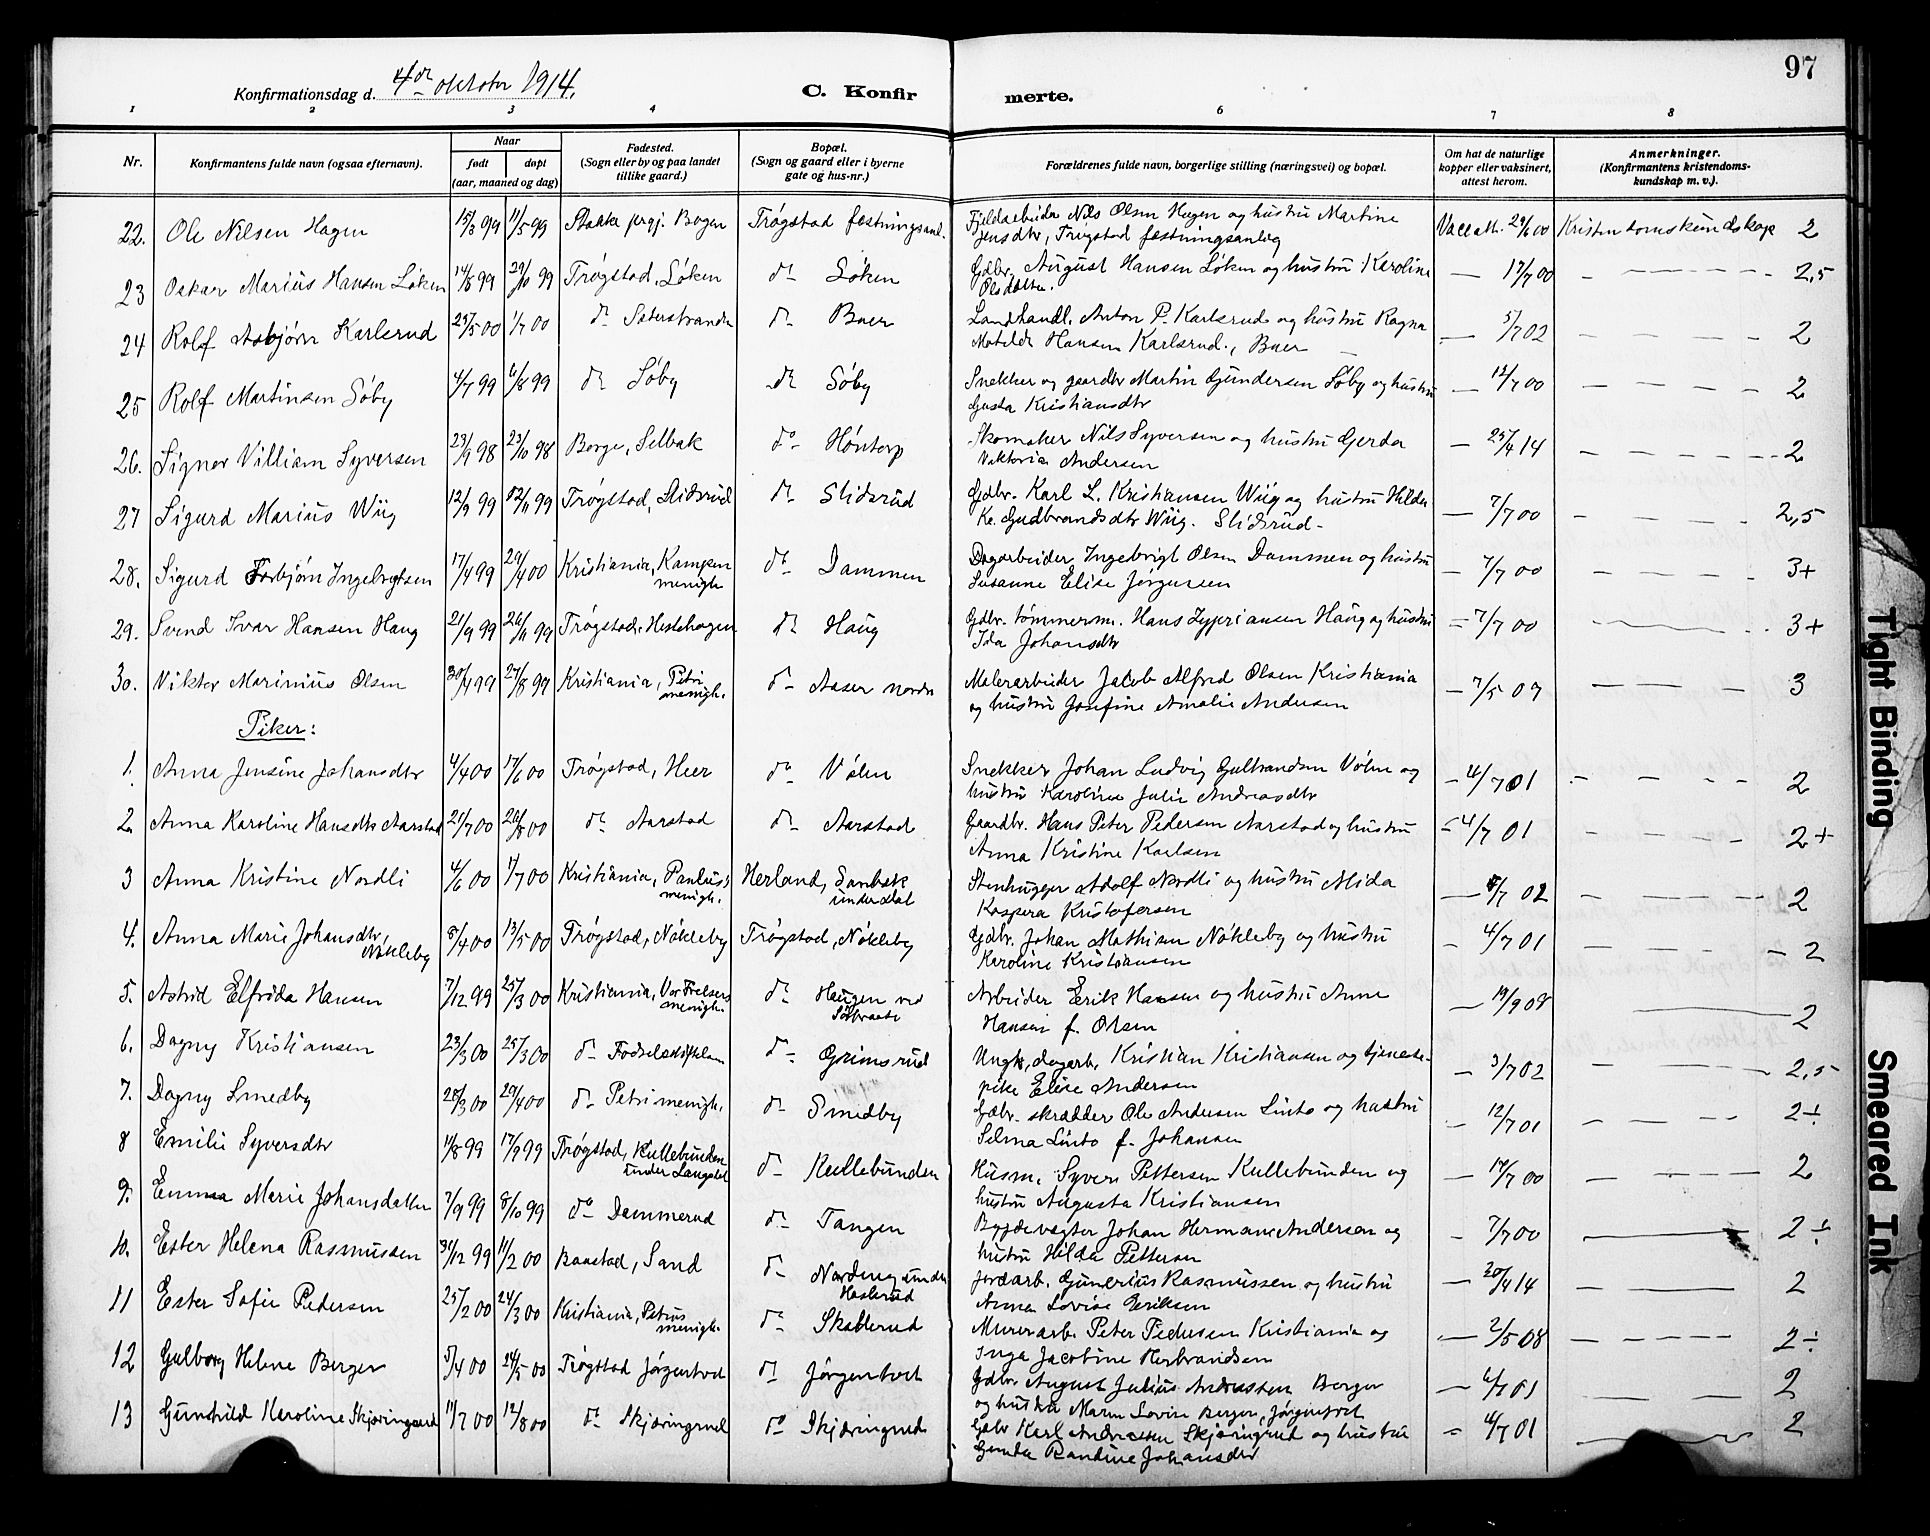 97
Konfirmationsdag d. 4de oktober 1914.
C. Konfir merte.
1 2 3 4 6 7 8
Nr. Konfirmantens fulde navn (ogsaa efternavn). Naar født døpt (aar, maaned og dag) Fødested. (Sogn eller by og paa landet tillike gaard.) Bopæl. (Sogn og gaard eller i byerne gate og hus-nr.) Forældrenes fulde navn, borgerlige stilling (næringsvei) og bopæl. Om hat de naturlige kopper eller vaksinert, attest herom. Anmerkninger. (Konfirmantens kristendomskundskap m. v.).
22. Ole Nilsen Hagen 15/3 99 11/5 99 Bogen Trøgstad festningsanl. Fjeldarbeider Nils Olsen Hagen og hustru Martine
Jensdtr, Trøgstad festningsanlæg Vacc att. 29/6 00 Kristendomskundskap 2
23 Oskar Marius Hansen Løken 14/8 99 29/10 99 Trøgstad, Løken do Løken Gdbr. August Hansen Løken og hustru Karoline
Olsdatter. — 17/7 00 2,5
24 Rolf Asbjørn Karlsrud 25/5 00 1/7 00 do Sæterstranda do Baer Landhandl. Anton P. Karlsrud og hustru Ragna
Matilde Hansen Karlsrud., Baer — 5/7 02 2
25 Rolf Martinsen Søby 4/7 99 6/8 99 do Søby do Søby Snekker og gaardbr Martin Gundersen Søby og hustru
Gusta Kristiansdtr — 12/7 00 2
26. Signor Villiam Syversen 23/9 98 23/10 98 Borge, Selbak do Høntorp Skomaker Nils Syversen og hustru Gerda
Viktoria Andersen — 25/4 14 2
27 Sigurd Marius Wiig 12/9 99 12/11 99 Trøgstad, Slidsrud do Slidsrud Gdbr. Karl L. Kristiansen Wiig og hustru Hilda
Ka. Gudbrandsdtr Wiig. Slidsrud — 7/7 00 2,5
28. Sigurd Torbjørn Ingebrigtsen 17/4 99 29/4 00 Kristiania, Kampen menigh. do Dammen Dagarbeider Ingebrigt Olsen Dammen og hustru
Susanne Elise Jørgensen — 7/7 00 3+
29. Svend Ivar Hansen Haug 21/9 99 26/11 99 Trøgstad, Hestehagen do Haug Gdbr. tømmerm. Hans Zyprianssen Haug og hustru
Ida Johansdtr — 7/7 00 3+
30. Viktor Marinius Olsen 30/4 99 27/8 99 Kristiania, Petri menigh. do Aaser nordre Malerarbeider Jacob Alfred Olsen Kristiania
og hustru Josefine Amalie Andersen — 7/5 07 3
Piker:
1. Anna Jensine Johansdtr 4/4 00 17/6 00 Trøgstad, Heer do Vølen Snekker Johan Ludvig Gulbrandsen Vølen og
hustru Karoline Julie Andreasdtr — 4/7 01 2
2. Anna Karoline Hansdtr Aarstad 21/7 00 26/8 00 do Aarstad do Aarstad Gaardbr. Hans Peter Pedersen Aarstad og hustru
Anna Kristine Karlsen — 4/7 01 2+
3 Anna Kristine Nordli 4/6 00 1/7 00 Kristiania, Paulus's menigh. Herland, Sandbæk under Stenhugger Adolf Nordli og hustru Alida
Kaspara Kristofersen — /7 02 2
4. Anna Marie Johansdtr Nøkleby 8/4 00 13/5 00 Trøgstad, Nøkleby Trøgstad, Nøkleby Gdbr. Johan Mathisen Nøkleby og hustru
Karoline Kristiansen — 4/7 01 2
5. Astrid Elfrida Hansen 7/12 99 25/3 00 Kristiania, Vor Frelsers menigh. do Haugen ved Arbeider Erik Hansen og hustru Anna
Hansen f. Olsen — 19/9 08 2
6. Dagny Kristiansen 23/3 00 25/3 00 do Fødselsstiftelsen do Grimsrud Ungk, dagarb. Kristian Kristiansen og tjeneste-
pike Elise Andersen — 3/7 02 2,5
7. Dagny Smedby 28/3 00 29/4 00 do Petri menigh. do Smedby Gdbr. skrædder Ole Andersen Linto og hustru
Selma Linto f. Johansen — 12/7 01 2÷
8 Emilie Syversdtr 11/8 99 17/9 99 Trøgstad, Kullebunden under Langsæt do Kullebunden Husm. Syver Pettersen Kullebunden og
hustru Augusta Kristiansen — /7 00 2
9. Emma Marie Johansdatter 7/9 99 8/10 99 do Dammerud do Tangen Bygdevægter Johan Herman Anderson og
hustru Hilda Petterson — 7/7 00 2÷
10. Ester Helena Rasmussen 31/12 99 11/2 00 Baastad, Sand do Nordeng under Haslerud Jordarb. Gunerius Rasmussen og hustru
Anna Lovise Eriksen — 20/4 14 2
11 Ester Sofie Pedersen 25/2 00 24/3 00 Kristiania, Petrus menigh. do Skallerud Murerarb. Peter Pedersen Kristiania og
Inga Jacobine Herbrandsen — 2/5 08 2÷
12 Gulborg Helene Berger 5/4 00 24/5 00 Trøgstad Jørgentvet do Jørgentvet Gdbr. August Julius Andreassen Berger
og hustru Maren Lovise Berger, Jørgentvet — 4/7 01 2
13 Gunhild Karoline Skjæringrud 11/7 00 12/8 00 do Skjæringrud do Skjæringrud Gdbr Karl Andreassen Skjæringrud og hustru
Randine Johansdtr — 4/7 01 2
Tight Binding
Smeared Ink